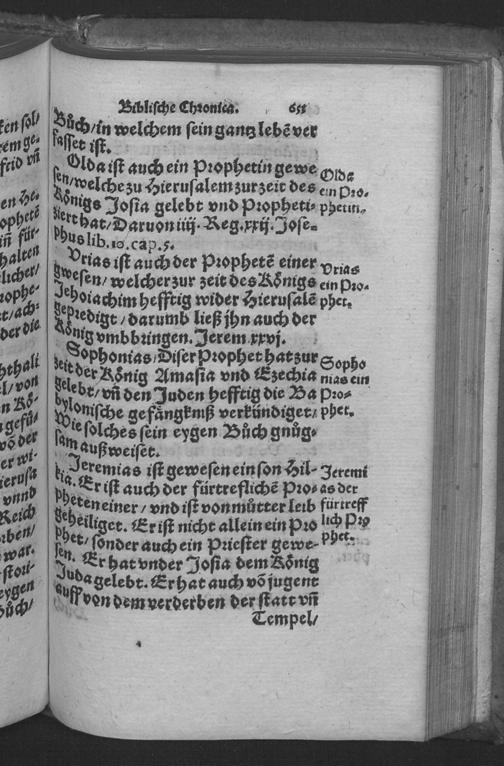 Biblische Chronica. 651
Bůch/in welchem sein gantz lebẽ ver
fasset ist.
Olda ist auch ein Prophetin gewe
sen/welche zu Hierusalem zur zeit des
Königs Josia gelebt vnd Propheti-
ziert hat/Daruon iiij. Reg.xxij. Jose-
phus lib.10.cap.5.
Vrias ist auch der Prophetẽ einer
gwesen/welcher zur zeit des Königs
Jehoiachim hefftig wider Hierusalẽ
gepredigt/darumb ließ jhn auch der
König vmbbringen. Jerem.xxvj.
Sophonias/Diser Prophet hat zur
zeit der König Amasia vnd Ezechia
gelebt/vñ den Juden hefftig die Ba
bylonische gefängkniß verkündiget/
Wie solches sein eygen Bůch gnůg-
sam außweiset.
Jeremias ist gewesen ein son Hil-
kia. Er ist auch der fürtreflichẽ Pro-
pheten einer/vnd ist von můtter leib
geheiliget. Er ist nicht allein ein Pro
phet/sonder auch ein Priester gewe-
sen. Er hat vnder Josia dem König
Juda gelebt. Er hat auch võ jugent
auff von dem verderben der statt vñ
Tempel/
Olda
ein Pro-
phetin.
Vrias
ein Pro-
phet.
Sopho
nias ein
Pro-
phet.
Jeremi
as der
fürtreff
lich Pro
phet.
ken sol/
rem ge-
ftid vñ
en He-
ophetẽ
iñ für-
halten
licher/
rophe-
t/ach-
der die
hthali
el/von
n Kö-
gefü-
võ der
er wi-
ierusa
vnnd
Reich
rben/
war.
stori-
eygen
bůch/